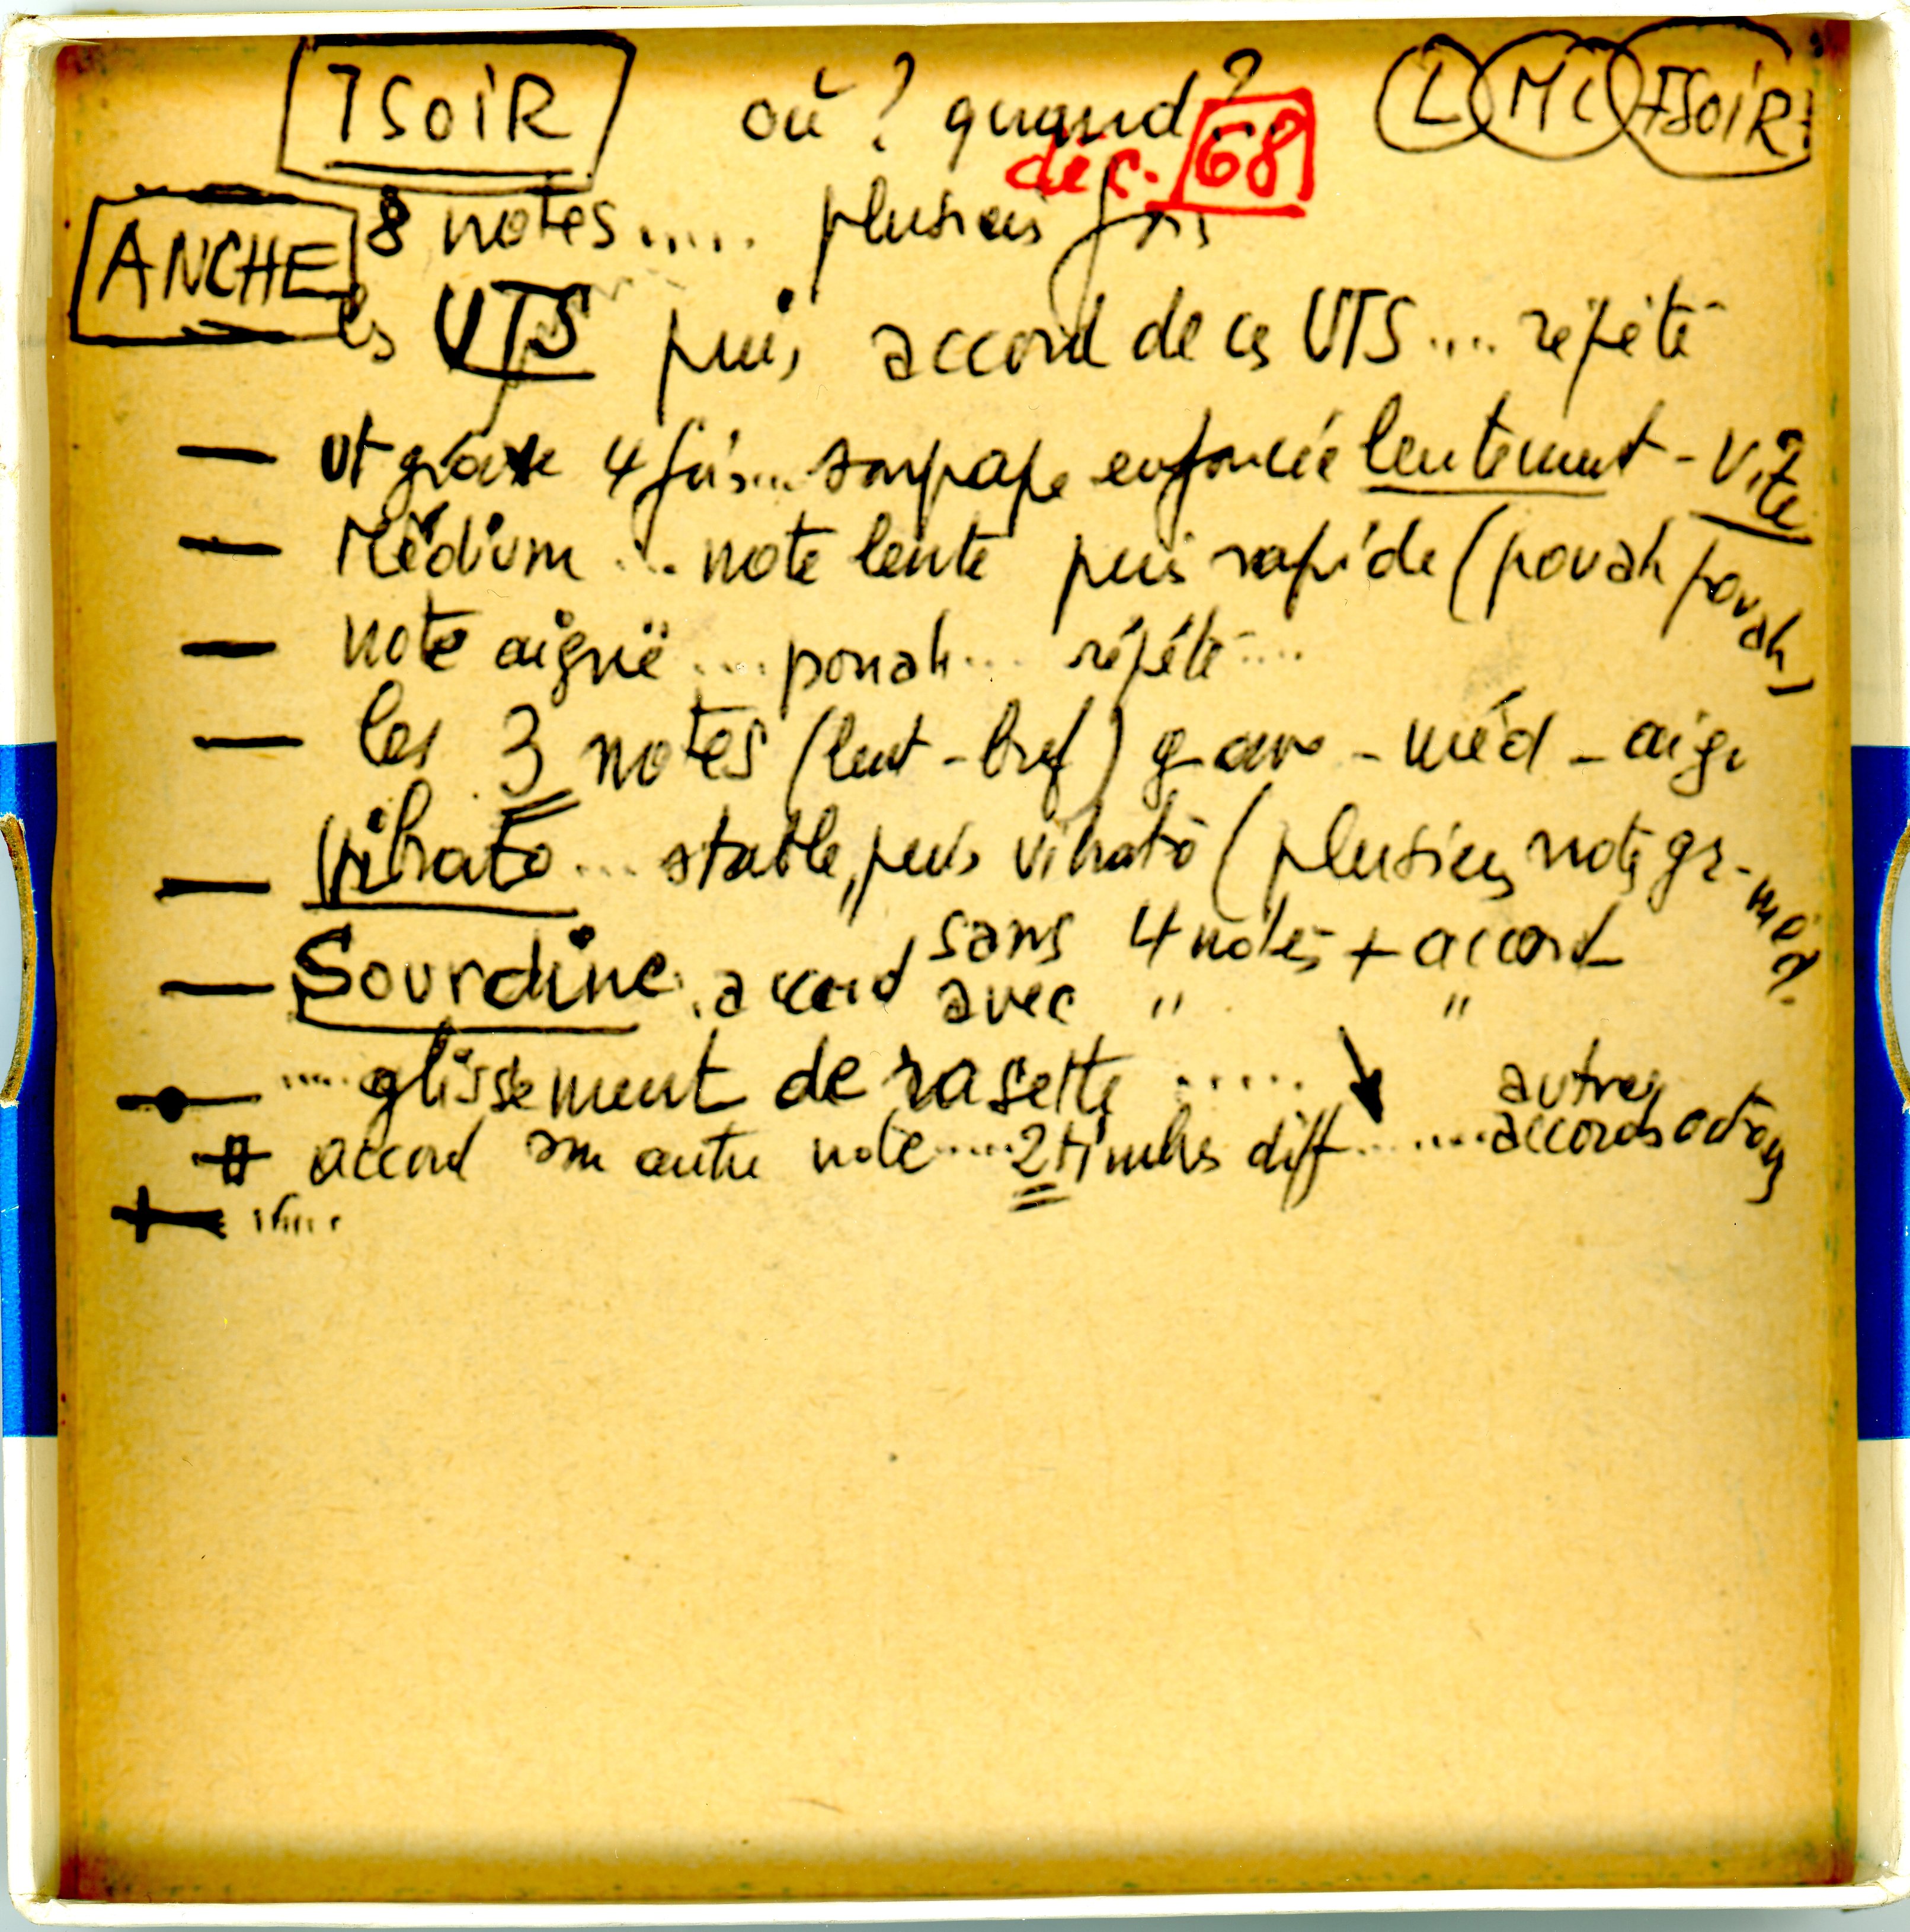 ISOIR où ? quand ? ... L MC ISOIR
déc. 68
ANCHE 8 notes..... plusieurs fois
les UTS puis accord de ces UTS .... répété
— ut grave 4 fois... soupape enfoncée lentement - vite
— Médium ... note lente puis rapide (pouah pouah)
— note aiguë .... pouah... répété ....
— les 3 notes (lent - bref) grave - méd - aigu
— Vibrato ... stable, puis vibrato (plusieurs notes gr - méd.
— Sourdine. accord sans 4 notes + accord
avec " "
.... glissement de rasette .....
accord sur autre note.....2 timbres diff........ autres accords octaves